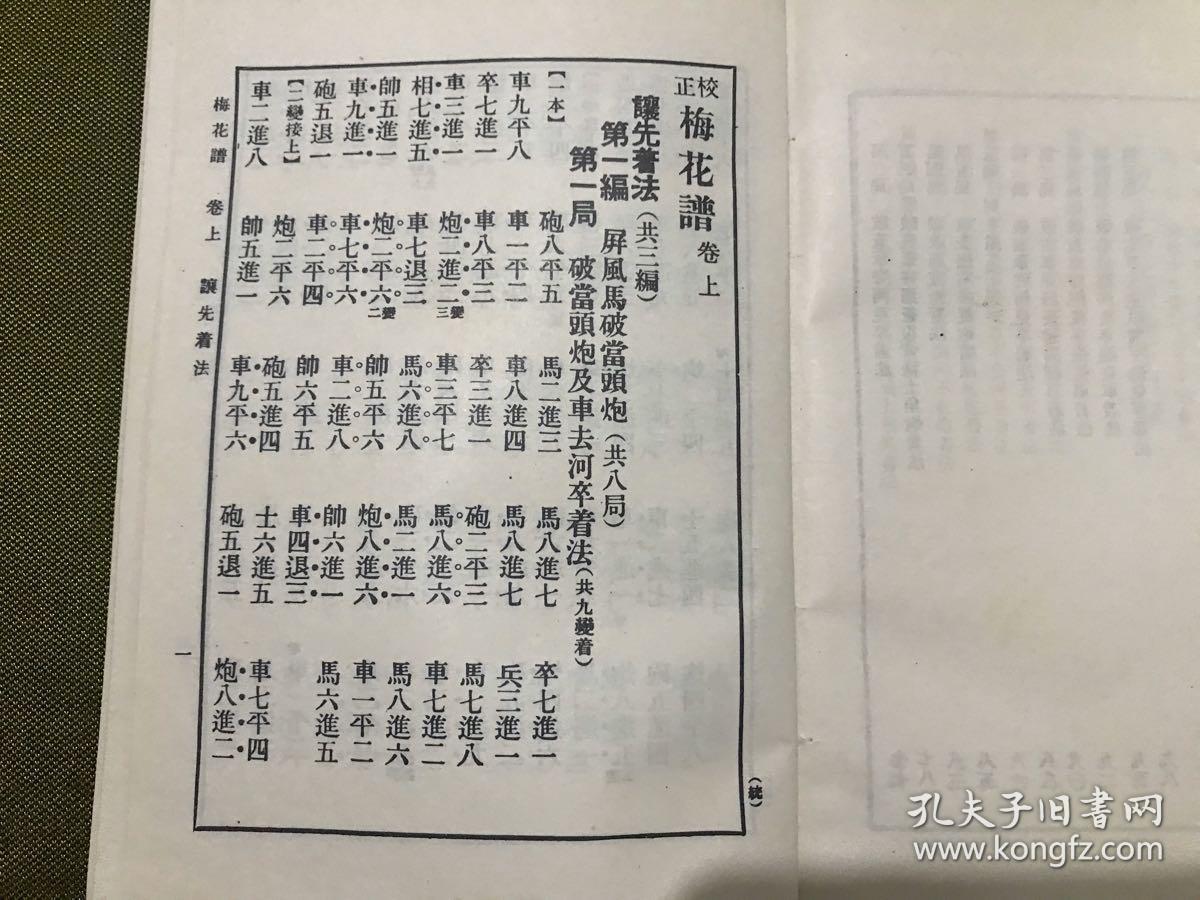 校正梅花譜 卷上
讓先着法（共三編）
第一編 屏風馬破當頭炮（共八局）
第一局 破當頭炮及車去河卒着法（共九變着）
【一本】 砲八平五 馬二進三 馬八進七 卒七進一
車九平八 車一平二 車八進四 馬八進七 兵三進一
卒七進一 車八平三 卒三進一 砲二平三 馬七進八
車三進一 炮二進二變三 車三平七 馬八進六 車七進二
相七進五 車七退三 馬六進八 馬二進一 馬八進六
帥五進一 炮二平六變二 帥五平六 炮八進六 車一平二
車九進一 車七平六 車二進八 帥六進一 馬六進五
砲五退一 車二平四 帥六平五 車四退三
【二變接上】 炮二平六 砲五進四 士六進五 車七平四
車二進八 帥五進一 車九平六 砲五退一 炮八進二
梅花譜 卷上 讓先着法
一
（統）
孔夫子旧书网
www.kongfz.com